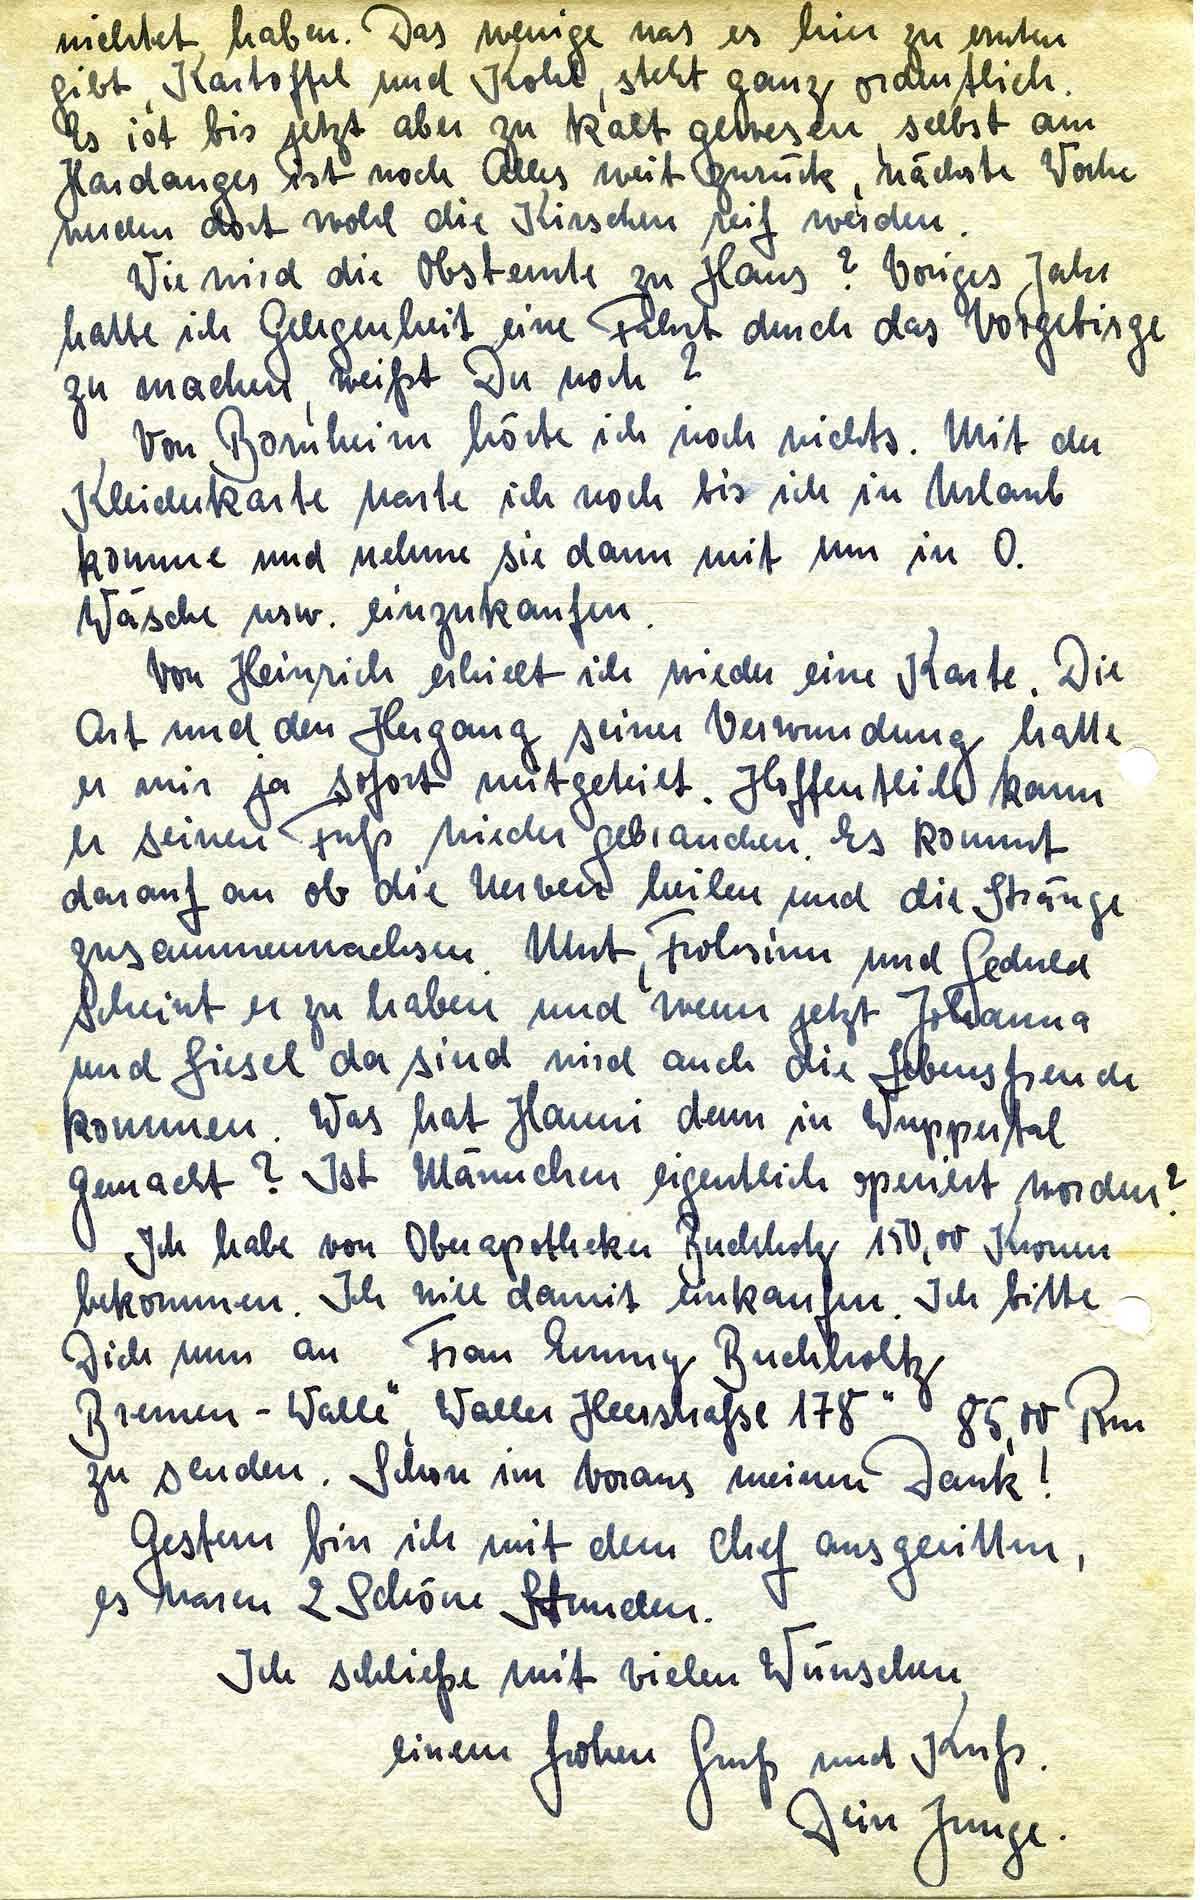 nichtet haben. Das wenige was es hier zu ernten
gibt, Kartoffel und Kohl, steht ganz ordentlich.
Es ist bis jetzt aber zu kalt gewesen, selbst am
Hardanger ist noch Alles weit zurück, nächste Woche
werden dort wohl die Kirschen reif werden.
Wie wird die Obsternte zu Haus? Voriges Jahr
hatte ich Gelegenheit eine Fahrt durch das Vorgebirge
zu machen, weißt Du noch?
Von Bornheim hörte ich noch nichts. Mit der
Kleiderkarte warte ich noch bis ich in Urlaub
komme und nehme sie dann mit um in O.
Wäsche usw. einzukaufen.
Von Heinrich erhielt ich wieder eine Karte. Die
Art und den Hergang seiner Verwundung hatte
er mir ja sofort mitgeteilt. Hoffentlich kann
er seinen Fuß wieder gebrauchen. Es kommt
darauf an ob die Nerven heilen und die Stränge
zusammenwachsen. Mut, Frohsinn und Geduld
scheint er zu haben und wenn jetzt Johanna
und Giesel da sind wird auch die Lebensfreude
kommen. Was hat Hanni denn in Wuppertal
gemacht? Ist Männchen eigentlich operiert worden?
Ich habe von Oberapotheker Buchholz 150,00 Kronen
bekommen. Ich will damit einkaufen. Ich bitte
Dich nun an Frau Emmy Buchholtz
Bremen-Walle "Waller Heerstraße 178" 85,00 Rm
zu senden. Schon im Voraus meinen Dank!
Gestern bin ich mit dem Chef ausgeritten,
es waren 2 Schöne Stunden.
Ich schließe mit vielen Wünschen,
einem frohen Gruß und Kuß.
Dein Junge.